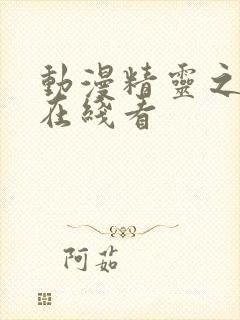 動漫精靈之
在綫看
阿茹